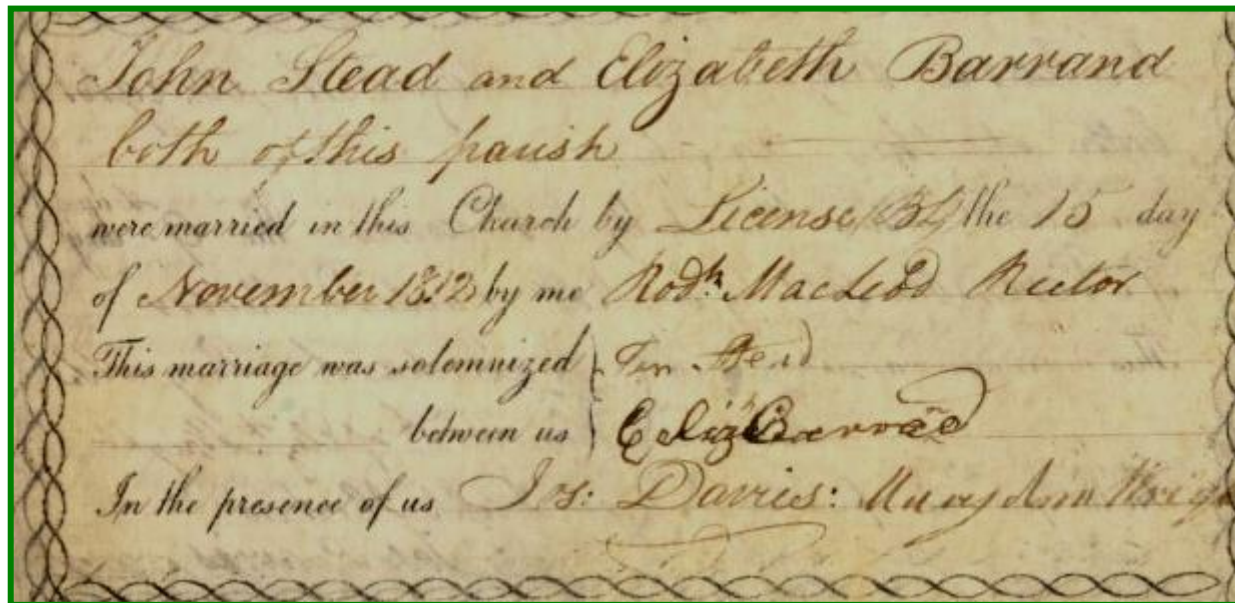 John Stead and Elizabeth Barrand
both of this parish
were married in this Church by License BG the 15 day
of November 1812 by me Rodk. MacLeod Rector
This marriage was solemnized Jn Stead
between us Eliz Barrand
In the presence of us Jos: Davies: Mary Ann